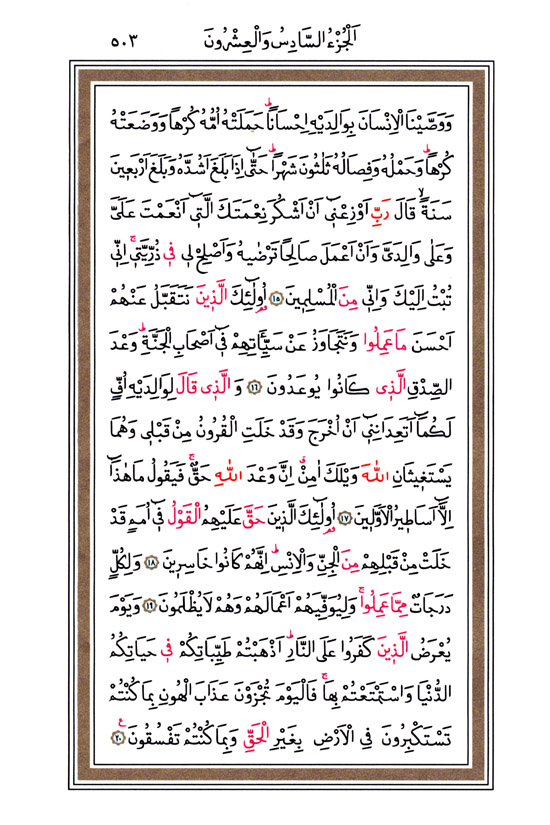 اَلْجُزْءُ السَّادِسُ وَالْعِشْرُونَ ٥٠٣
وَوَصَّيْنَا الْاِنْسَانَ بِوَالِدَيْهِ اِحْسَانًاۜ حَمَلَتْهُ اُمُّهُ كُرْهًا وَوَضَعَتْهُ
كُرْهًاۜ وَحَمْلُهُ وَفِصَالُهُ ثَلٰثُونَ شَهْرًاۜ حَتّٰٓى اِذَا بَلَغَ اَشُدَّهُ وَبَلَغَ اَرْبَع۪ينَ
سَنَةًۙ قَالَ رَبِّ اَوْزِعْن۪ٓى اَنْ اَشْكُرَ نِعْمَتَكَ الَّت۪ٓى اَنْعَمْتَ عَلَىَّ
وَعَلٰى وَالِدَىَّ وَاَنْ اَعْمَلَ صَالِحًا تَرْضٰيهُ وَاَصْلِحْ ل۪ى ف۪ى ذُرِّيَّت۪ىۚ اِنّ۪ى
تُبْتُ اِلَيْكَ وَاِنّ۪ى مِنَ الْمُسْلِم۪ينَ ﴿١٥﴾ اُو۬لٰٓئِكَ الَّذ۪ينَ نَتَقَبَّلُ عَنْهُمْ
اَحْسَنَ مَا عَمِلُوا وَنَتَجَاوَزُ عَنْ سَيِّـَٔاتِهِمْ ف۪ٓى اَصْحَابِ الْجَنَّةِۜ وَعْدَ
الصِّدْقِ الَّذ۪ى كَانُوا يُوعَدُونَ ﴿١٦﴾ وَالَّذ۪ى قَالَ لِوَالِدَيْهِ اُفٍّ
لَكُمَٓا اَتَعِدَانِن۪ٓى اَنْ اُخْرَجَ وَقَدْ خَلَتِ الْقُرُونُ مِنْ قَبْل۪ى وَهُمَا
يَسْتَغ۪يثَانِ اللّٰهَ وَيْلَكَ اٰمِنْۗ اِنَّ وَعْدَ اللّٰهِ حَقٌّۚ فَيَقُولُ مَا هٰذَٓا
اِلَّٓا اَسَاط۪يرُ الْاَوَّل۪ينَ ﴿١٧﴾ اُو۬لٰٓئِكَ الَّذ۪ينَ حَقَّ عَلَيْهِمُ الْقَوْلُ ف۪ٓى اُمَمٍ قَدْ
خَلَتْ مِنْ قَبْلِهِمْ مِنَ الْجِنِّ وَالْاِنْسِۜ اِنَّهُمْ كَانُوا خَاسِر۪ينَ ﴿١٨﴾ وَلِكُلٍّ
دَرَجَاتٌ مِمَّا عَمِلُواۚ وَلِيُوَفِّيَهُمْ اَعْمَالَهُمْ وَهُمْ لَا يُظْلَمُونَ ﴿١٩﴾ وَيَوْمَ
يُعْرَضُ الَّذ۪ينَ كَفَرُوا عَلَى النَّارِۜ اَذْهَبْتُمْ طَيِّبَاتِكُمْ ف۪ى حَيَاتِكُمُ
الدُّنْيَا وَاسْتَمْتَعْتُمْ بِهَاۚ فَالْيَوْمَ تُجْزَوْنَ عَذَابَ الْهُونِ بِمَا كُنْتُمْ
تَسْتَكْبِرُونَ فِى الْاَرْضِ بِغَيْرِ الْحَقِّ وَبِمَا كُنْتُمْ تَفْسُقُونَ۟ ﴿٢٠﴾